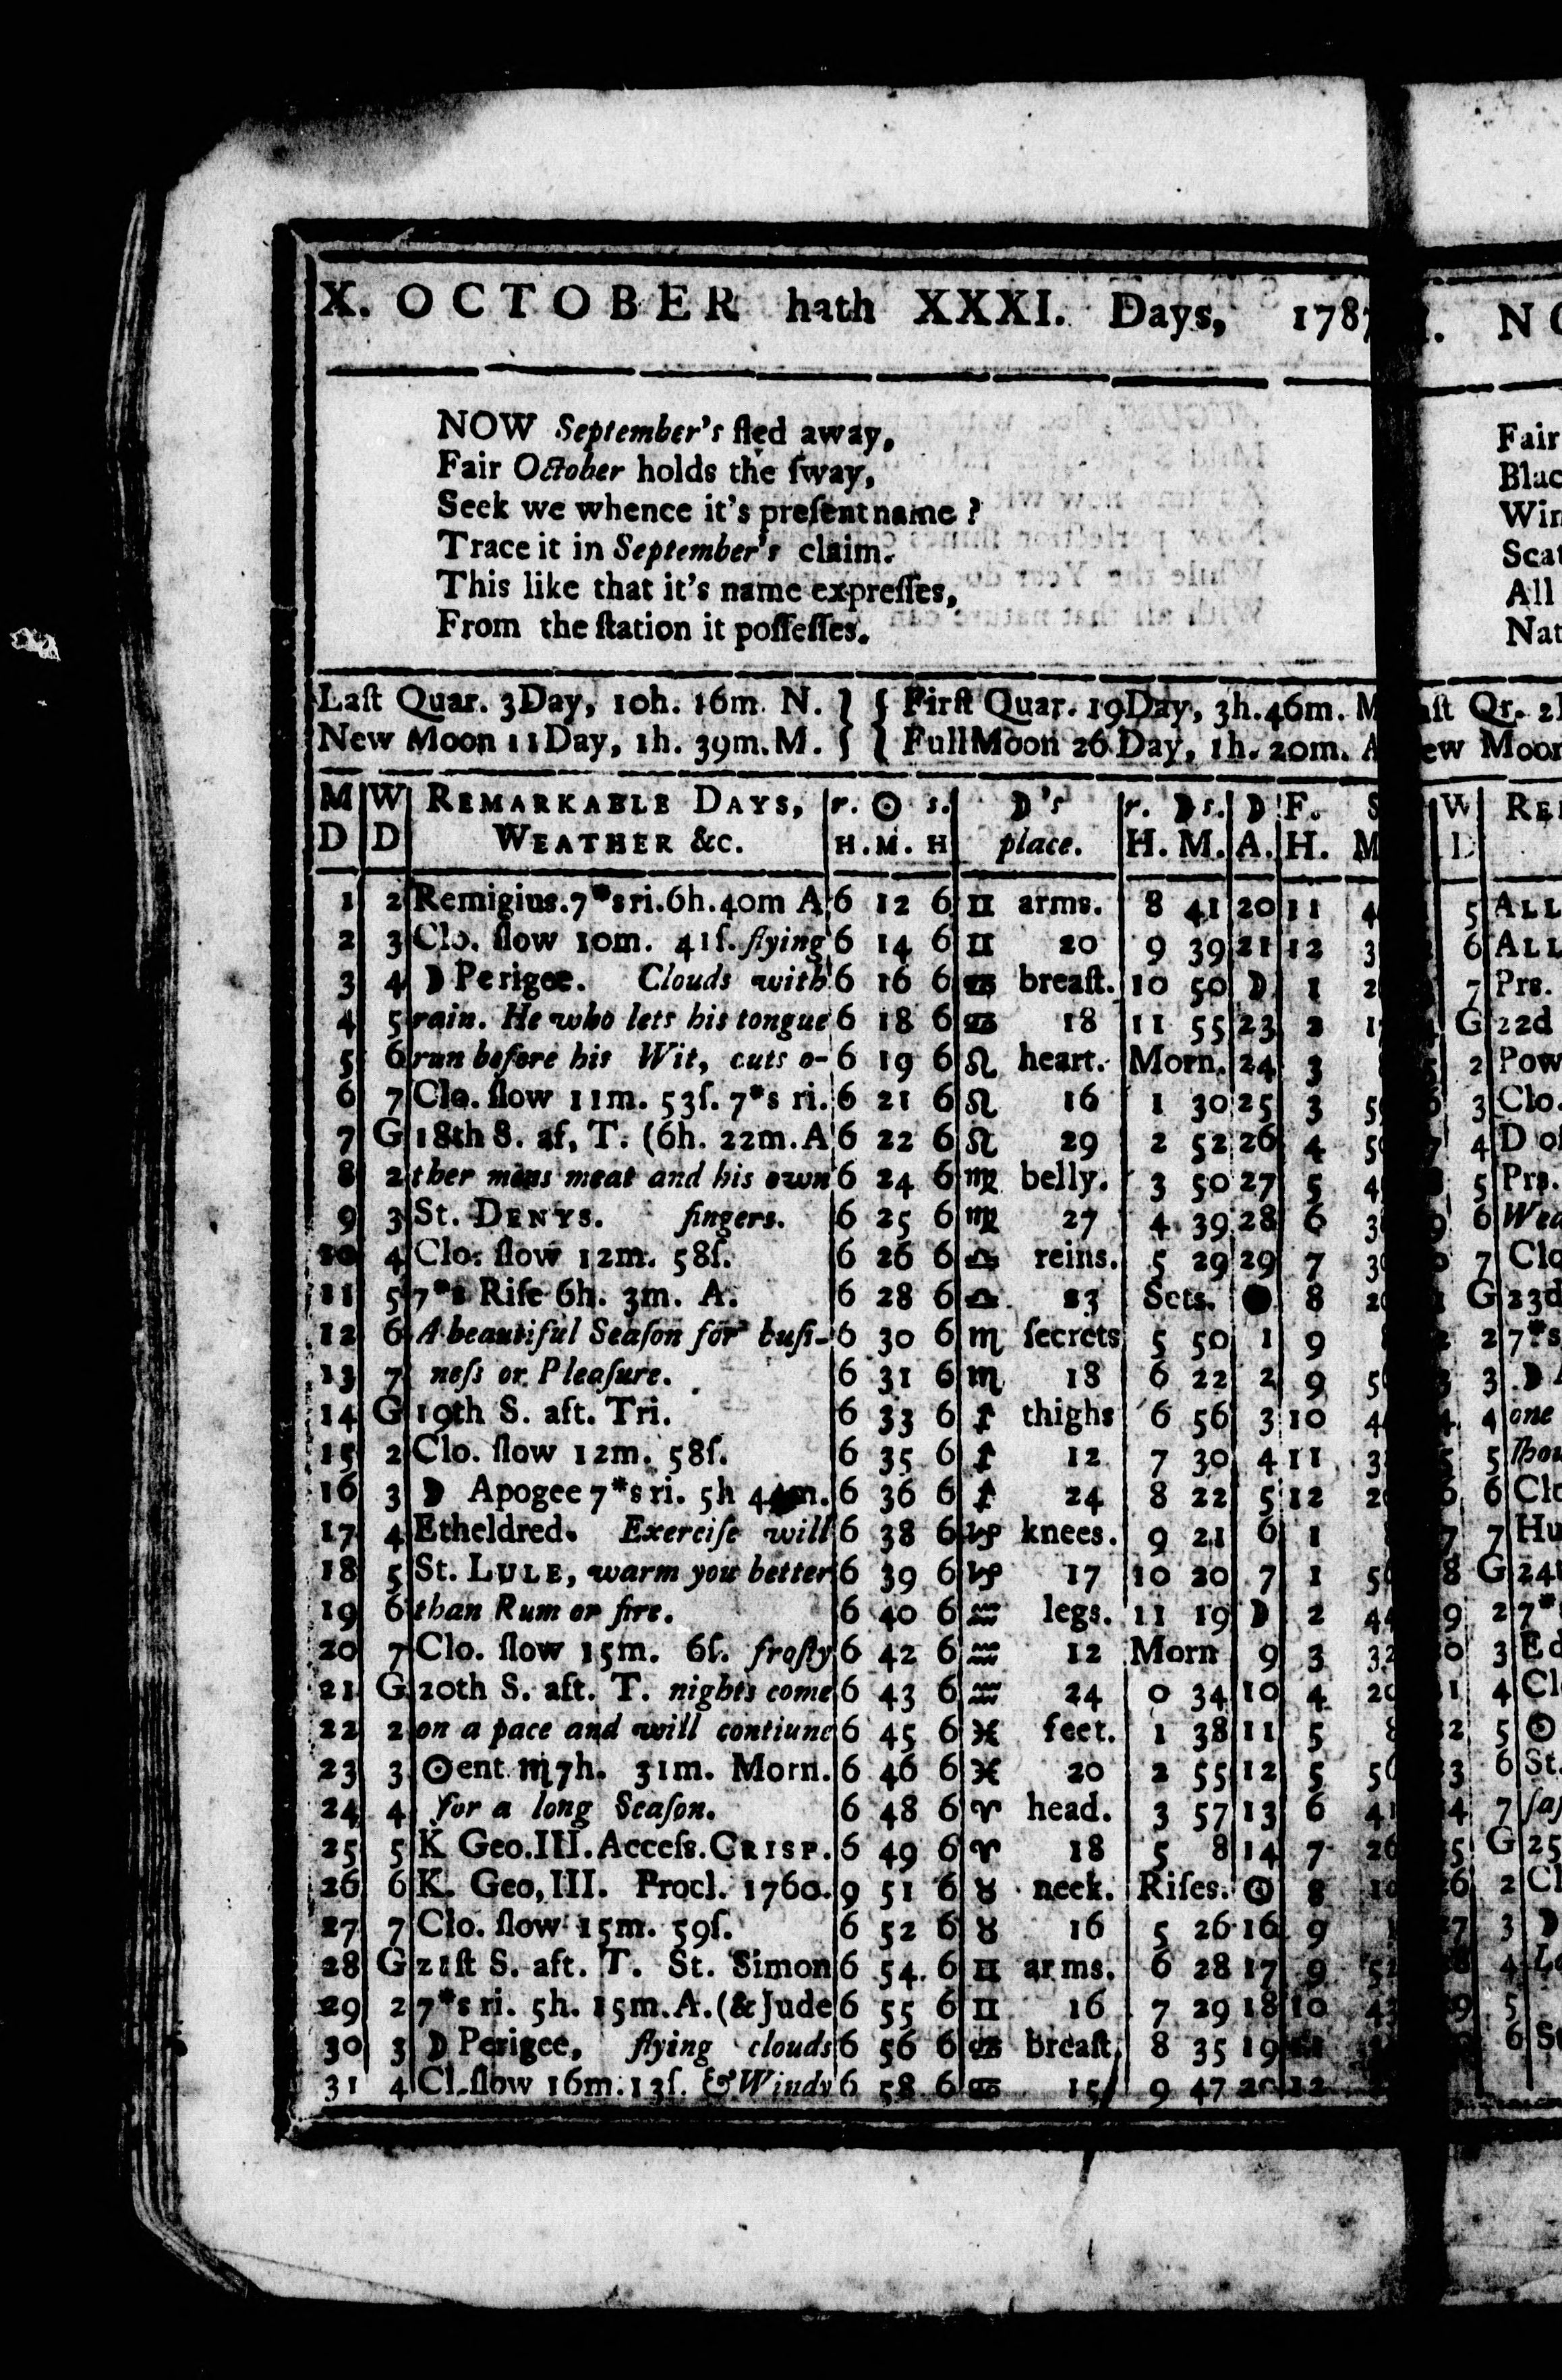 X. OCTOBER hath XXXI. Days, 1787
NOW September's fled away,
Fair October holds the ſway,
Seek we whence it's preſent name ?
Trace it in September's claim.
This like that it's name expreſſes,
From the ſtation it poſſeſſes.
Laſt Quar. 3Day, 10h. 16m. N. } { Firſt Quar. 19Day, 3h.46m. M
New Moon 11Day, 1h. 39m.M. } { FullMoon 26 Day, 1h. 20m. A
M W REMARKABLE DAYS, r. ☉ s. ☽'s r. ☽s. ☽ F. S
D D WEATHER &c. H.M. H place. H. M. A. H. M
1 2 Remigius.7*sri.6h.40m A 6 12 6 ♊ arms. 8 41 20 11 4
2 3 Clo. ſlow 10m. 41ſ. flying 6 14 6 ♊ 20 9 39 21 12 3
3 4 ☽ Perigee. Clouds with 6 16 6 ♋ breaſt. 10 50 ☽ 1 2
4 5 rain. He who lets his tongue 6 18 6 ♋ 18 11 55 23 2 1
5 6 run before his Wit, cuts o- 6 19 6 ♌ heart. Morn. 24 3
6 7 Clo. ſlow 11m. 53ſ. 7*s ri. 6 21 6 ♌ 16 1 30 25 3 5
7 G 18th S. af, T. (6h. 22m.A 6 22 6 ♌ 29 2 52 26 4 5
8 2 ther mens meat and his own 6 24 6 ♍ belly. 3 50 27 5 4
9 3 St. DENYS. fingers. 6 25 6 ♍ 27 4 39 28 6 3
10 4 Clo. ſlow 12m. 58ſ. 6 26 6 ♎ reins. 5 29 29 7 3
11 5 7*s Riſe 6h. 3m. A. 6 28 6 ♎ 23 Sets. ● 8 2
12 6 A beautiful Seaſon for buſi- 6 30 6 ♏ ſecrets 5 50 1 9
13 7 neſs or Pleaſure. 6 31 6 ♏ 18 6 22 2 9 5
14 G 19th S. aft. Tri. 6 33 6 ♐ thighs 6 56 3 10 4
15 2 Clo. ſlow 12m. 58ſ. 6 35 6 ♐ 12 7 30 4 11 3
16 3 ☽ Apogee 7*sri. 5h 6 36 6 ♐ 24 8 22 5 12 2
17 4 Etheldred. Exerciſe will 6 38 6 ♑ knees. 9 21 6 1
18 5 St. LULE, warm you better 6 39 6 ♑ 17 10 20 7 1 5
19 6 than Rum or fire. 6 40 6 ♒ legs. 11 19 ☽ 2 44
20 7 Clo. ſlow 15m. 6ſ. froſty 6 42 6 ♒ 12 Morn 9 3 32
21 G 20th S. aft. T. nights come 6 43 6 ♒ 24 0 34 10 4 20
22 2 on a pace and will contiune 6 45 6 ♓ feet. 1 38 11 5 8
23 3 ☉ent ♏7h. 31m. Morn. 6 46 6 ♓ 20 2 55 12 5 56
24 4 for a long Seaſon. 6 48 6 ♈ head. 3 57 13 6 41
25 5 K Geo.III.Acceſs.CRISP. 6 49 6 ♈ 18 5 8 14 7 26
26 6 K. Geo,III. Procl. 1760. 9 51 6 ♉ neck. Riſes. ☉ 8 10
27 7 Clo. ſlow 15m. 59ſ. 6 52 6 ♉ 16 5 26 16 9
28 G 21ſt S. aft. T. St. Simon 6 54 6 ♊ arms. 6 28 17 9 52
29 2 7*s ri. 5h. 15m.A.(& Jude 6 55 6 ♊ 16 7 29 18 10 43
30 3 ☽ Perigee, flying clouds 6 56 6 ♋ breaſt. 8 35 19
31 4 Cl.ſlow 16m.13ſ. & Windy 6 58 6 ♋ 15 9 47 20 12
. N
Fair
Blac
Win
Scat
All
Nat
aſt Qr. 2
ew Moon
W RE
D
5 ALL
6 ALL
7 Prs.
G 22d
2 Pow
3 Clo.
4 D o
5 Prs.
9 6 Wea
7 Clo
G 23d
2 7*s
3 ☽
4 one
5 Thou
6 Clo
7 7 Hu
8 G 24t
9 2 7*
0 3 Ed
1 4 Cl
2 5 ☉
3 6 St.
4 7 ſa
5 G 25
6 2 Cl
7 3 ☽
8 4 L
9 5
6 S